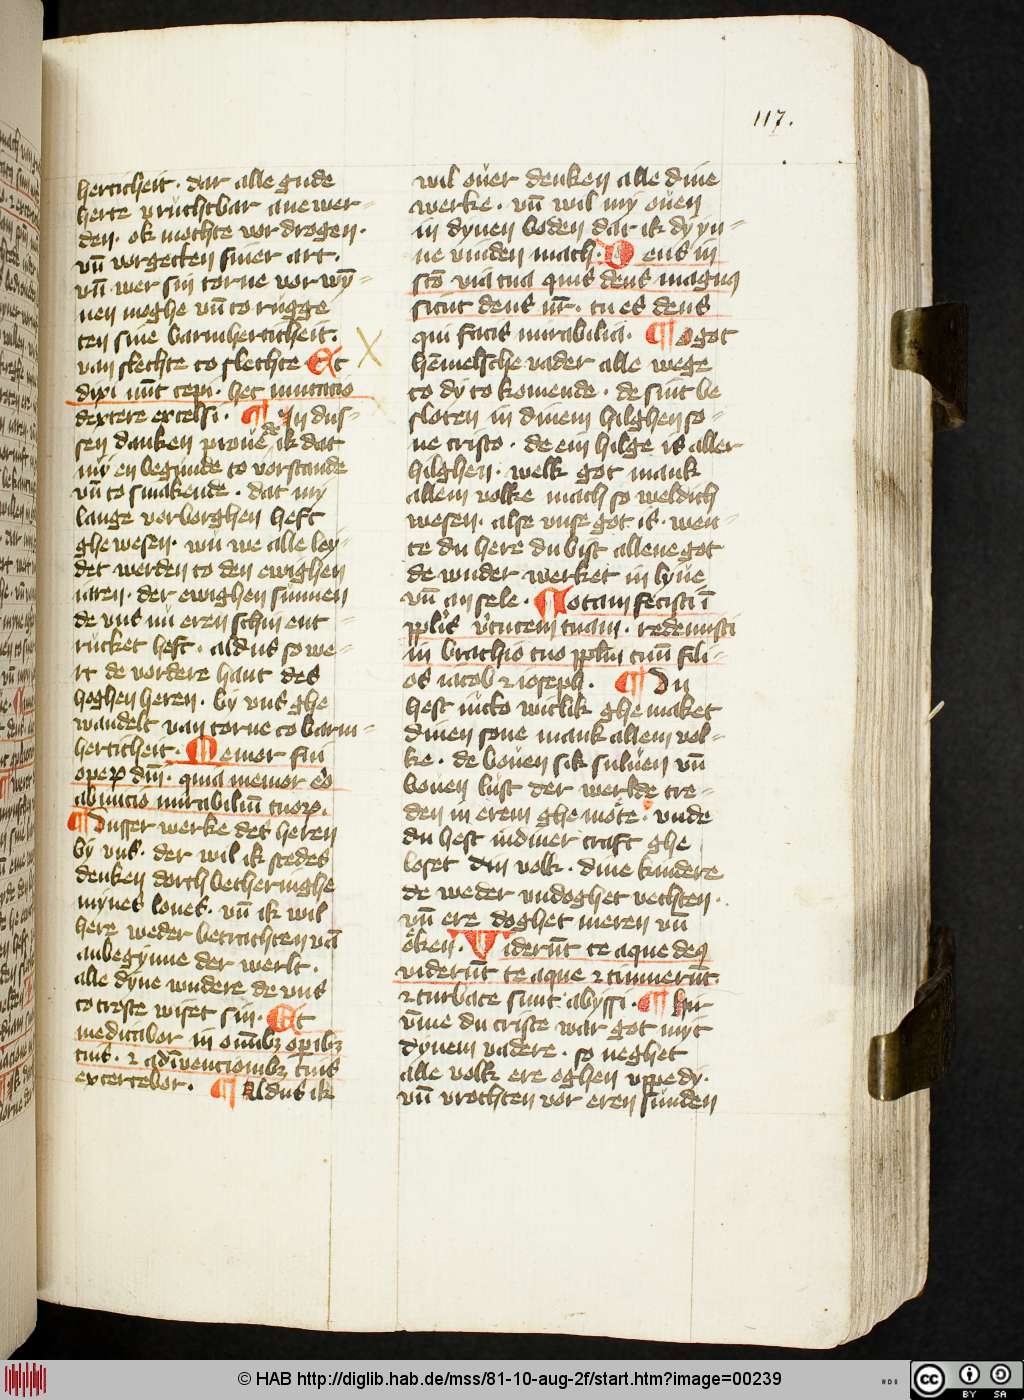 117.
herticheit. dar alle gude
herte vruchtbar aue wer-
den. ok mochte vor drogen.
vn̄ vorgetten siner art.
vn̄ wer sin torne vor wȳ-
nen moghe vn̄ to rugge
ten sine barmherticheit.
van slechte to slechte Et
dixi nūc cepi. hec mutatio
dextere excelsi. ¶ In dus-
sen danken prouede ik dat
my en begunde to vorstande
vn̄ to smakende. dat my
lange vorborghen heft
ghe wesen. wu we alle ley-
det werden to den ewighen
iaren. der ewighen sunnen
de vns nu eren schin ent-
rucket heft. aldus so we-
rt de vordere hant des
heghen heren. by vns ghe
wandelt van torne to barm-
herticheit. Memor fui
operꝝ dn̄i. quia memor ero
ab inicio mirabiliū tuorꝝ.
¶ Dusser werke det heren
by vns. der wil ik stedes
denken dorch betheringhe
mynes loues. vn̄ ik wil
here weder betrachten vā
anbegynne der werlt.
alle dyne wndere de vns
to troste wiset sin. Et
meditabor in omībꝫ opibꝫ
tuis. ⁊ adīvencionibꝫ tuis
exercebor. ¶ Aldus ik
wil ouer denken alle dine
werke. vn̄ wil my ouen
in dynen boden dar ik dy yn-
ne vinden mach. Deus in
scō via tua quis deus magnꝰ
sicut deus nr̄. tu es deus
qui facis mirabilia. ¶ O got
hēmelsche vader alle wege
to dy to komende. de sint be
sloten in dinem hilghen so-
ne cristo. de ein hilge is aller
hilghen. welk got mank
allem volke mach so weldich
wesen. alse vnse got is. wen-
te du here du bist allene got
de wnder werket in lyue
vn̄ an sele. Notam fecisti ī
pplis v̓tutem tuam. redemisti
in brachio tuo pplm̄ tuū fili-
os iacob ⁊ ioseph. ¶ Du
hest iucko witlik ghe maket
dinen sone mank allem vol-
ke. de bouen sik suluen vn̄
bouen lust der werlde tre-
den in erem ghe mote. vnde
du hest in diner craft ghe
loset din volk. dine kindere
de weder vndoghet vechten.
vn̄ ere doghet meren vn̄
oken. Viderūt te aque deꝰ
viderūt te aque ⁊ timuerūt.
⁊ turbate sunt abyssi. ¶ Hir
v̄me du criste war got myt
dynem vadere. so neghet
alle volk ere oghen vppe dy.
vn̄ vrochten vor eren sunden
© HAB http://diglib.hab.de/mss/81-10-aug-2f/start.htm?image=00239
HAB
cc BY SA